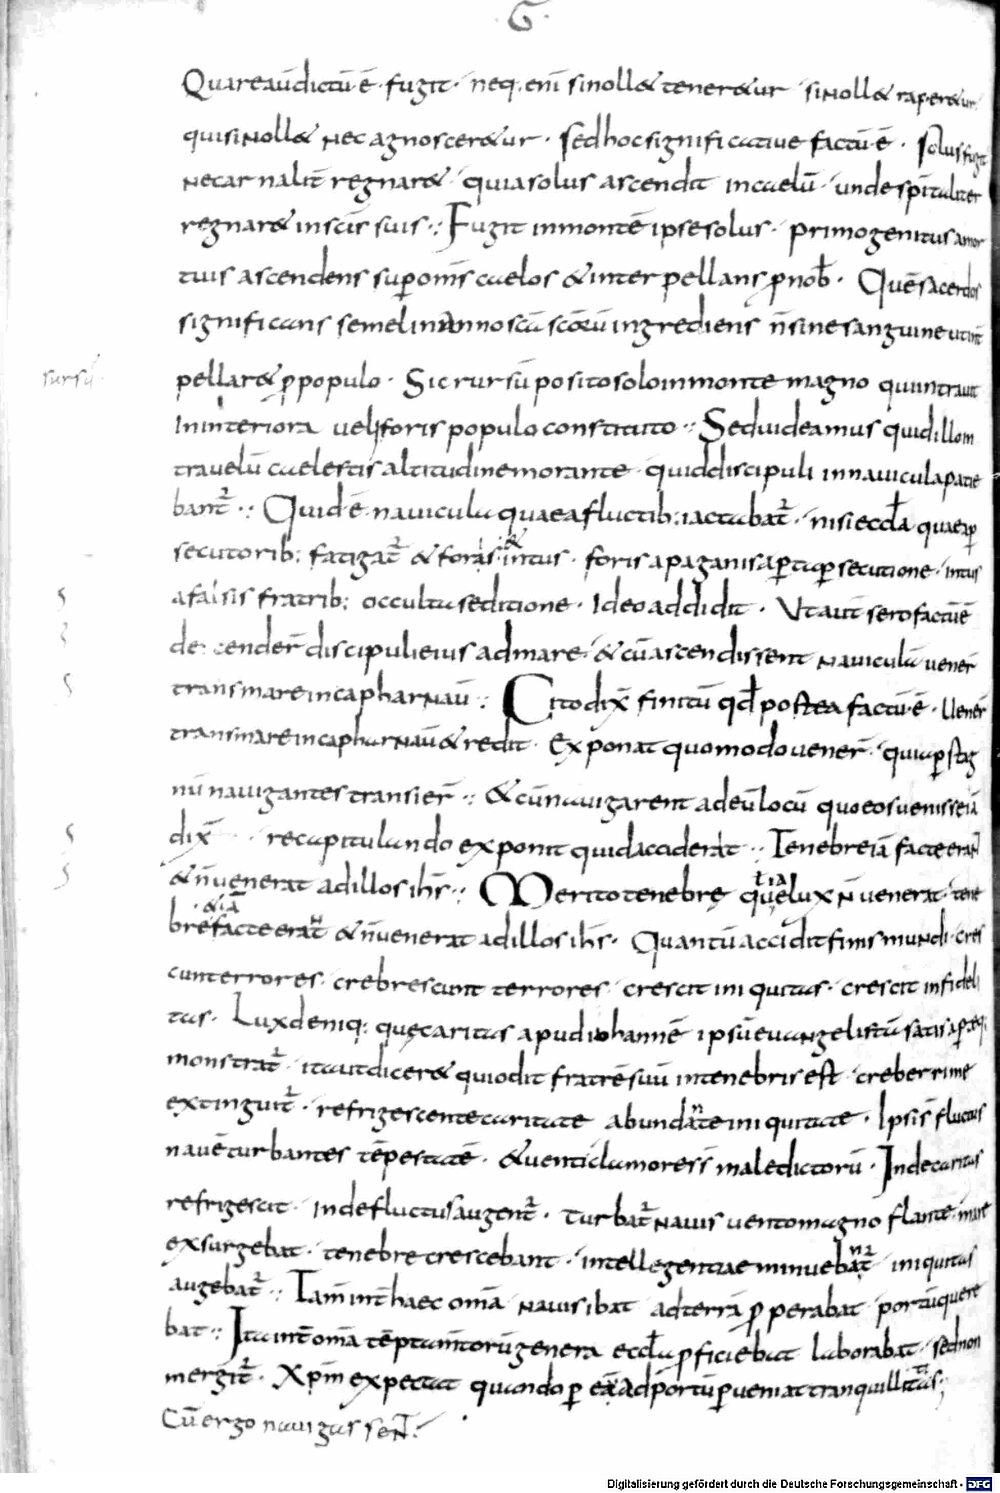 G
Quare aūdictū ē · fugit · neq, enī si noll& tener&ur · si noll& raper&ur
qui si noll& nec agnoscer&ur · sed hoc significative factū ē · solus fugit
ne carnalit̄ regnar& · quia solus ascendit in caelū · unde sp̄italiter
regnar& in sc̄is suis · Fugit in montē ipse solus · primogenitus a mor
tuis ascendens sup om̄s caelos & interpellans p nob̄ · Quē sacerdos
significans semel in anno sc̄a sc̄orū ingrediens n̄ sine sanguine ut int̄
sursū
pellar& p populo · Sic rursū posito solo in monte magno qui intraut
In interiora veli foris populo constituto · Sed videamus quid illo in
tra velū caelestis altitudine morante · quid discipuli in navicula patie
bant̄ · Quid ē navicula quae a fluctib; iactabat̄ · nisi eccl̄a quae a p
secutorib; fatigat̄ & foras & intus · foris a paganis aperta psecutione · intus
a falsis fratrib; occulta seditione · Ideo addidit · Ut aut̄ sero factū ē
de cender̄ discipuli eius ad mare · & cū ascendissent naviculā vener̄
trans mare in capharnaū · Cito dix̄ finitū qd̄ postea factū ē · Uener̄
trans mare in capharnaū & redit · Exponat quomodo vener̄ · quia p stag
nū navigantes transier̄ · & cū navigarent ad eū locū quo eos venisse iā
dix̄ · recapitulando exponit quid acciderat · Tenebre iā factę erant
& n̄ venerat ad illos ih̄s · Merito tenebrę quia lux n̄ venerat · tene
& iā
bre facte erant̄ & n̄ venerat ad illos ih̄s · Quantū accidit finis mundi · cres
cunt errores · crebrescunt terrores · crescit iniquitas · crescit infideli
tas · Lux deniq; quę caritas apud iohannē ipsū evangelistū satis apteq;
monstrat̄ · ita ut dicer& qui odit fratrē suū in tenebris est · creberrime
extinguit̄ · refrigescente caritate abundante iniquitate · Ipsi s̄ fluctus
navē turbantes tēpestatē · & venti clamores s̄ maledictorū · Inde caritas
refrigescit · inde fluctus augent̄ · turbat̄ navis vento magno flante · mare
exsurgebat · tenebre crescebant · intellegentiae minuebant̄ · iniquitas
augebat̄ · Tam̄ int̄ haec om̄a navis ibat ad terrā pperabat · portū quere
bat · Ita int̄ om̄a tēptam̄torū genera eccl̄a pficiebat laborabat · sed non
mergit̄ · Xp̄m expectat quando p eā ad portū pveniat tranquillitatis;
Cū ergo navigassent̄ ·
Digitalisierung gefördert durch die Deutsche Forschungsgemeinschaft · DFG